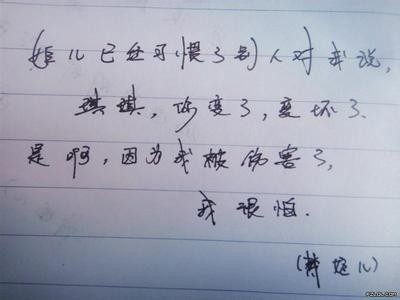 儿已经习惯了别人对我说,
琪琪,你变了,变坏了.
是啊,因为我被伤害了,
我很怕.